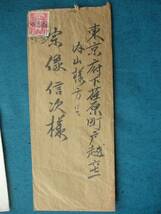 東京府下荏原町戸越六二
内山様方
宗像信次様